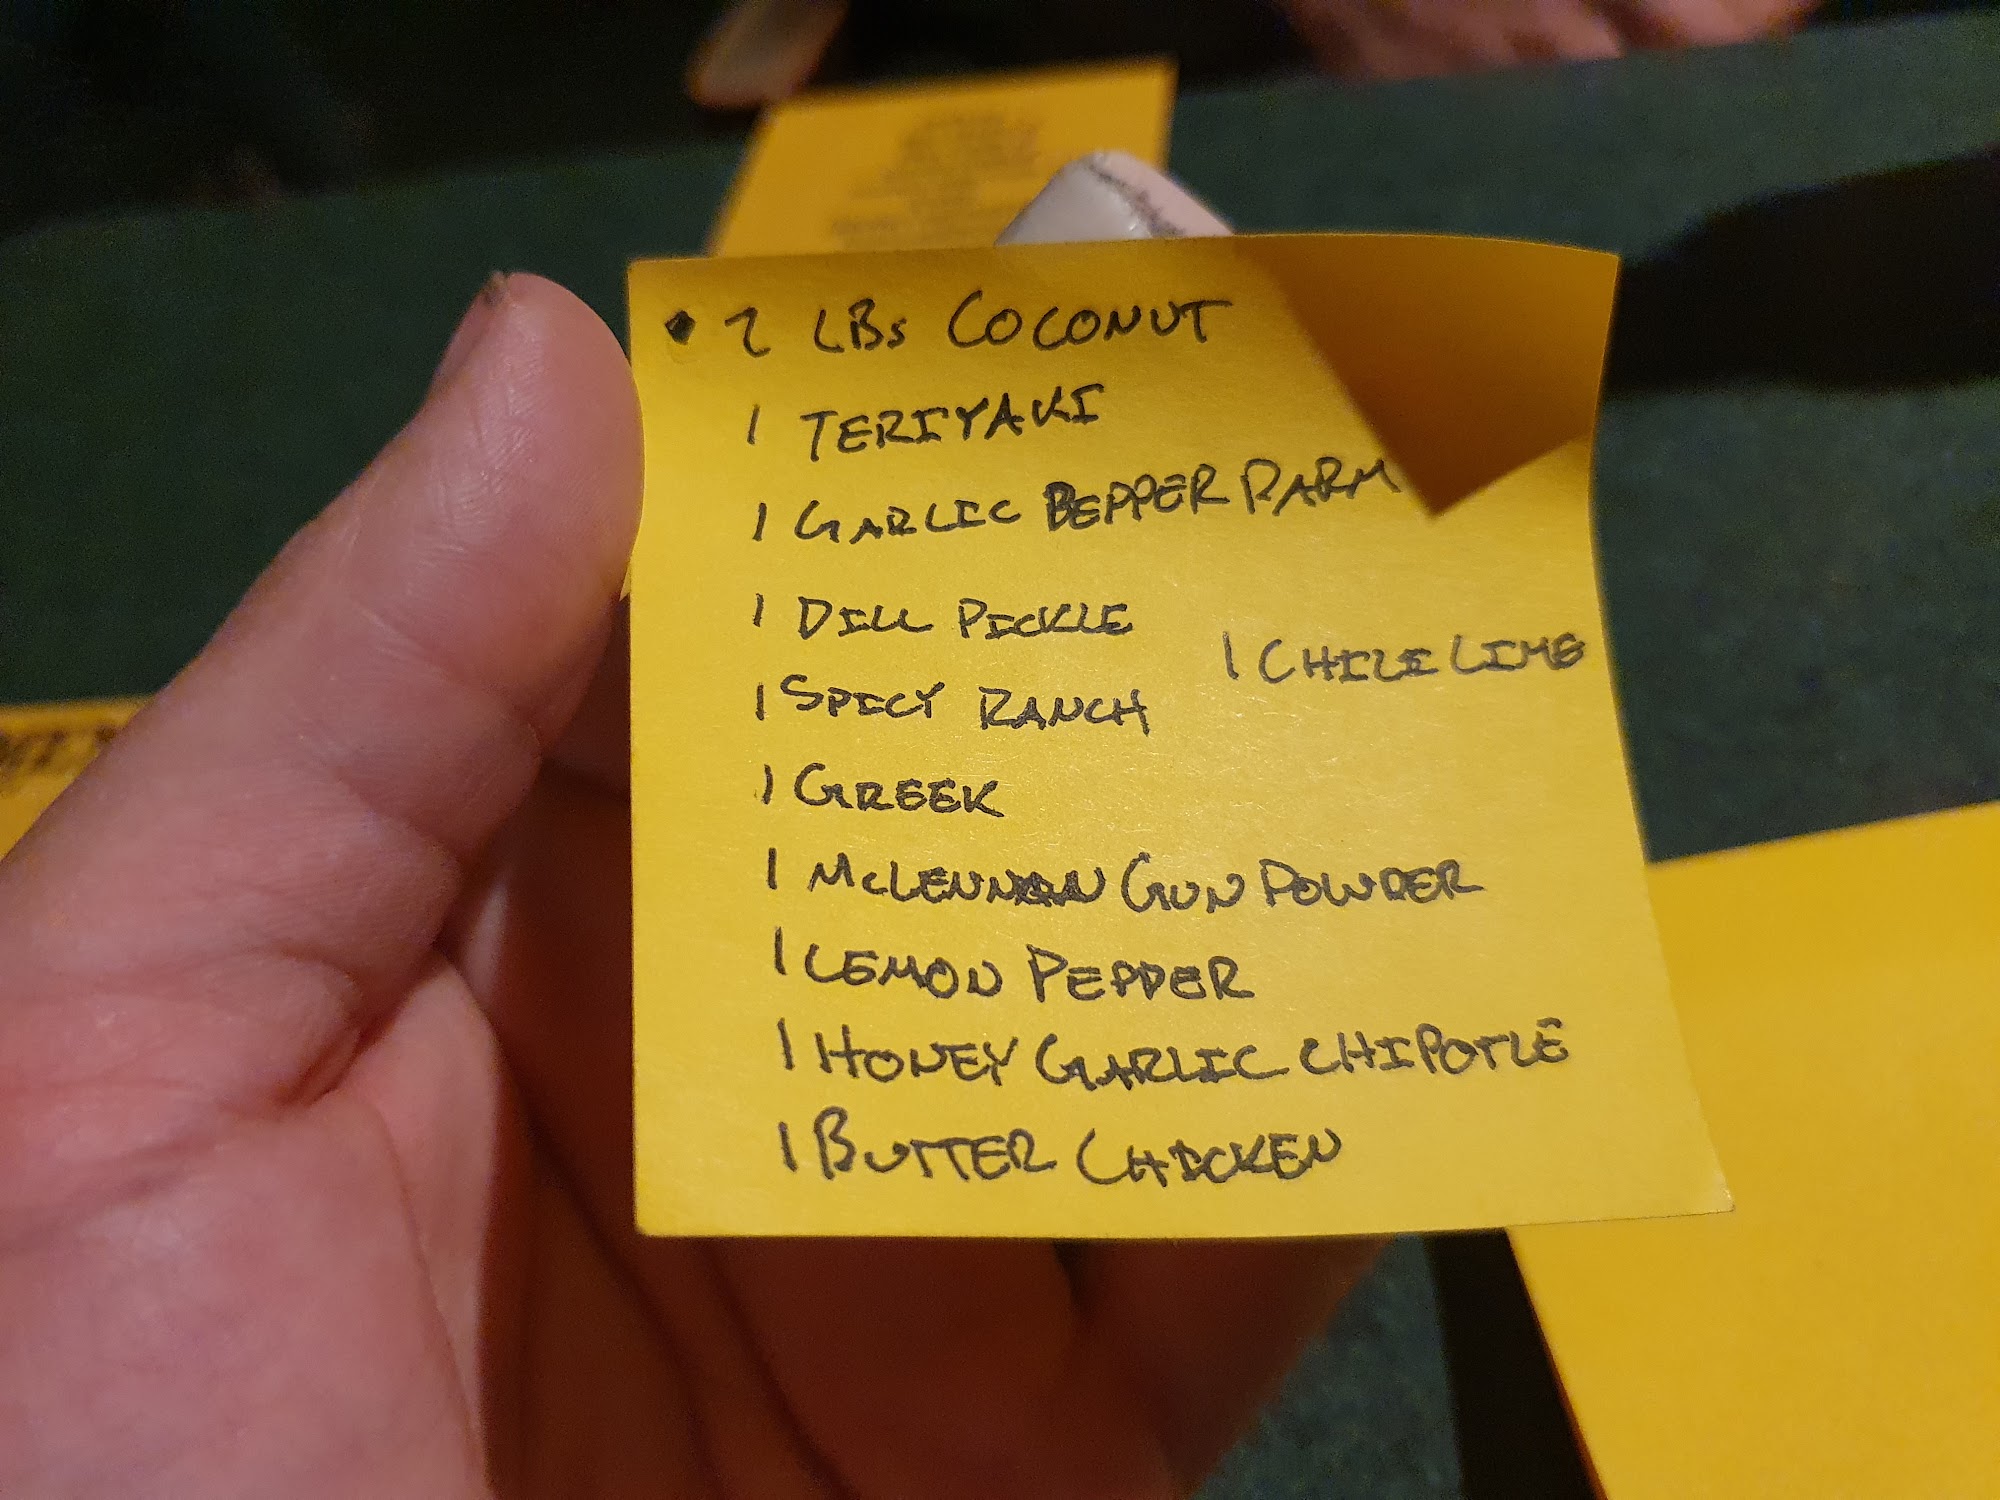 • 2 LBs COCONUT
1 TERIYAKI
1 GARLIC BEPPER PARM
1 DILL PICKLE
1 CHILI LIME
1 SPICY RANCH
1 GREEK
1 McLENNAN GUN POWDER
1 LEMON PEPPER
1 HONEY GARLIC CHIPOTLE
1 BUTTER CHICKEN